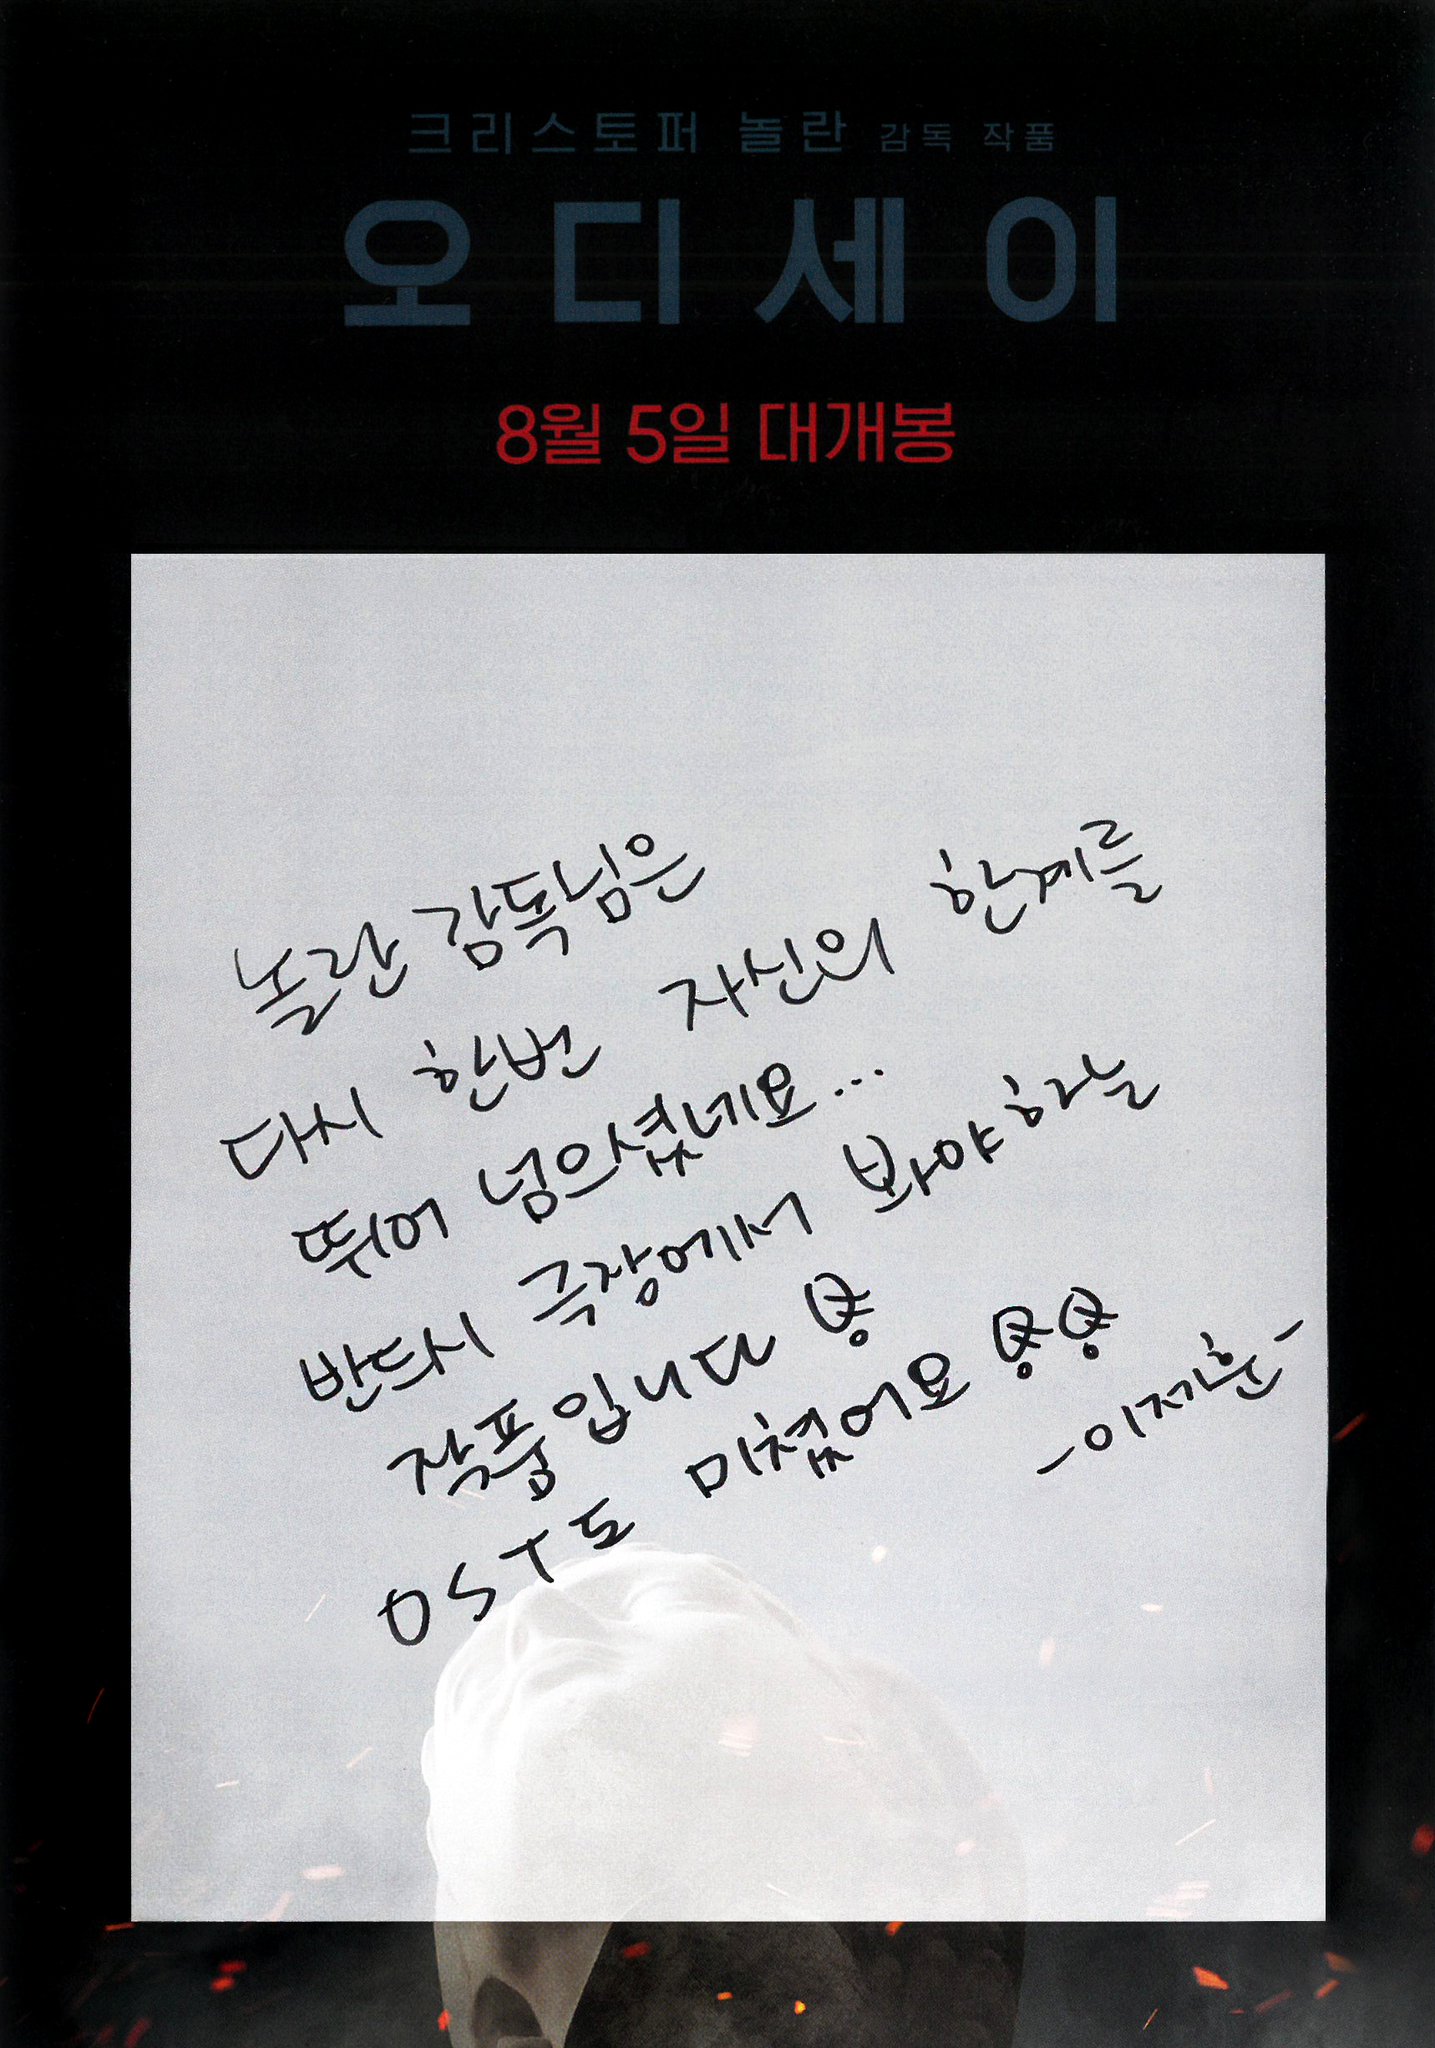 크리스토퍼 놀란 감독 작품
오디세이
8월 5일 대개봉
놀란 감독님은
다시 한번 자신의 한계를
뛰어 넘으셨네요...
반드시 극장에서 봐야하는
작품입니다
OST도 미쳤어요
-이지훈-